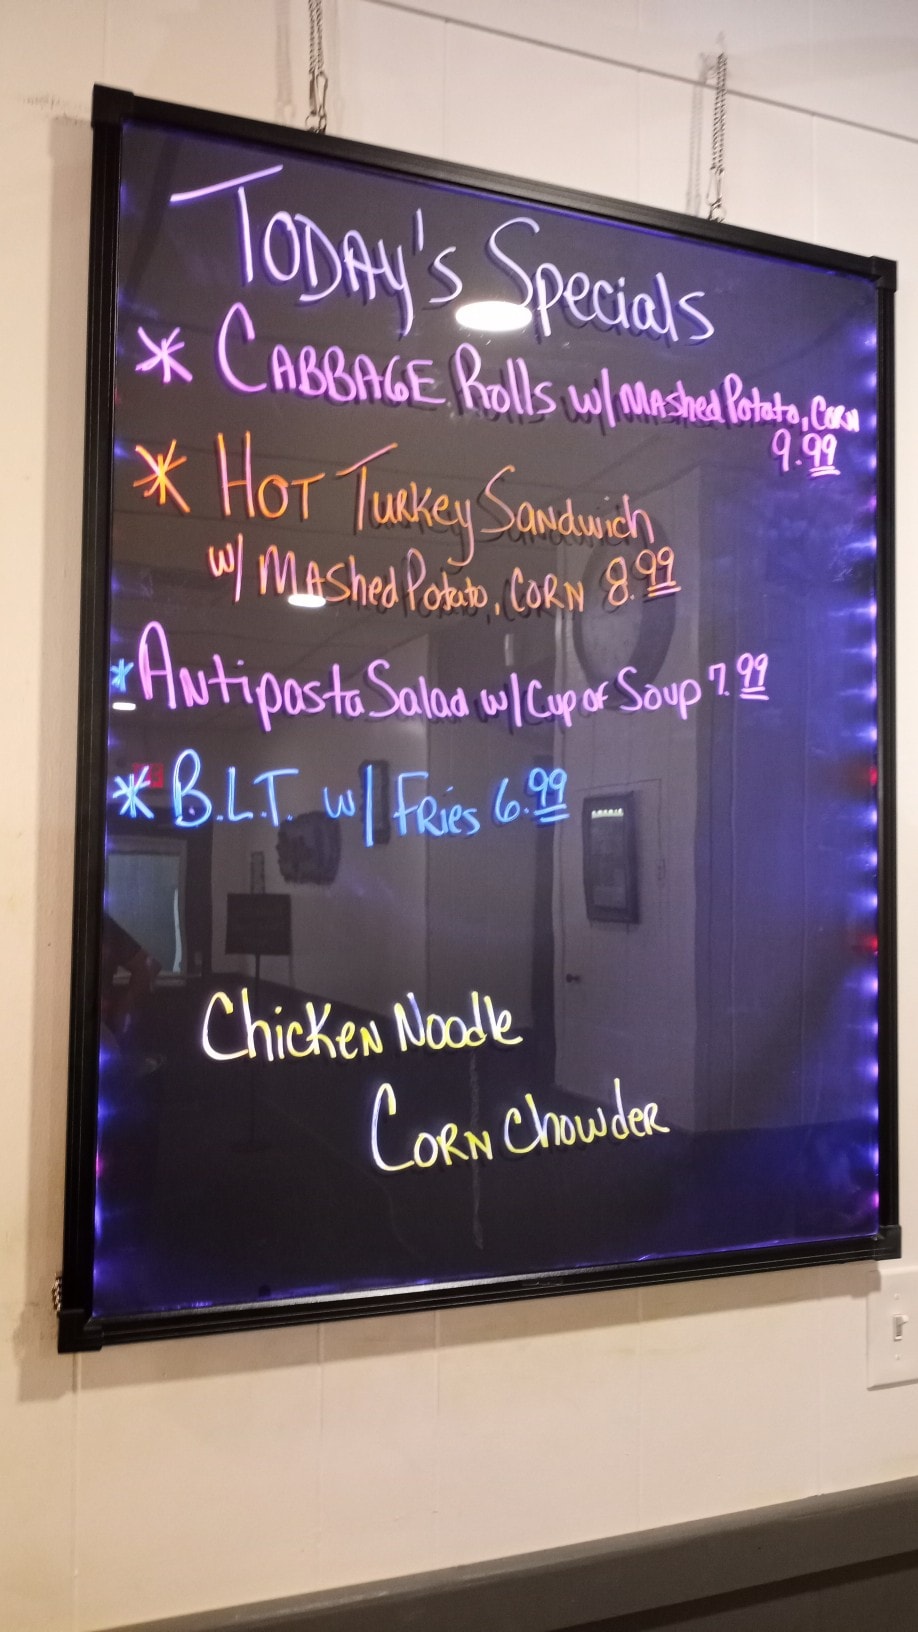 Today's Specials
* Cabbage Rolls w/ Mashed Potato, Corn
9.99
* Hot Turkey Sandwich
w/ Mashed Potato, Corn 8.99
* Antipasta Salad w/ Cup of Soup 7.99
* B.L.T. w/ Fries 6.99
Chicken Noodle
Corn Chowder